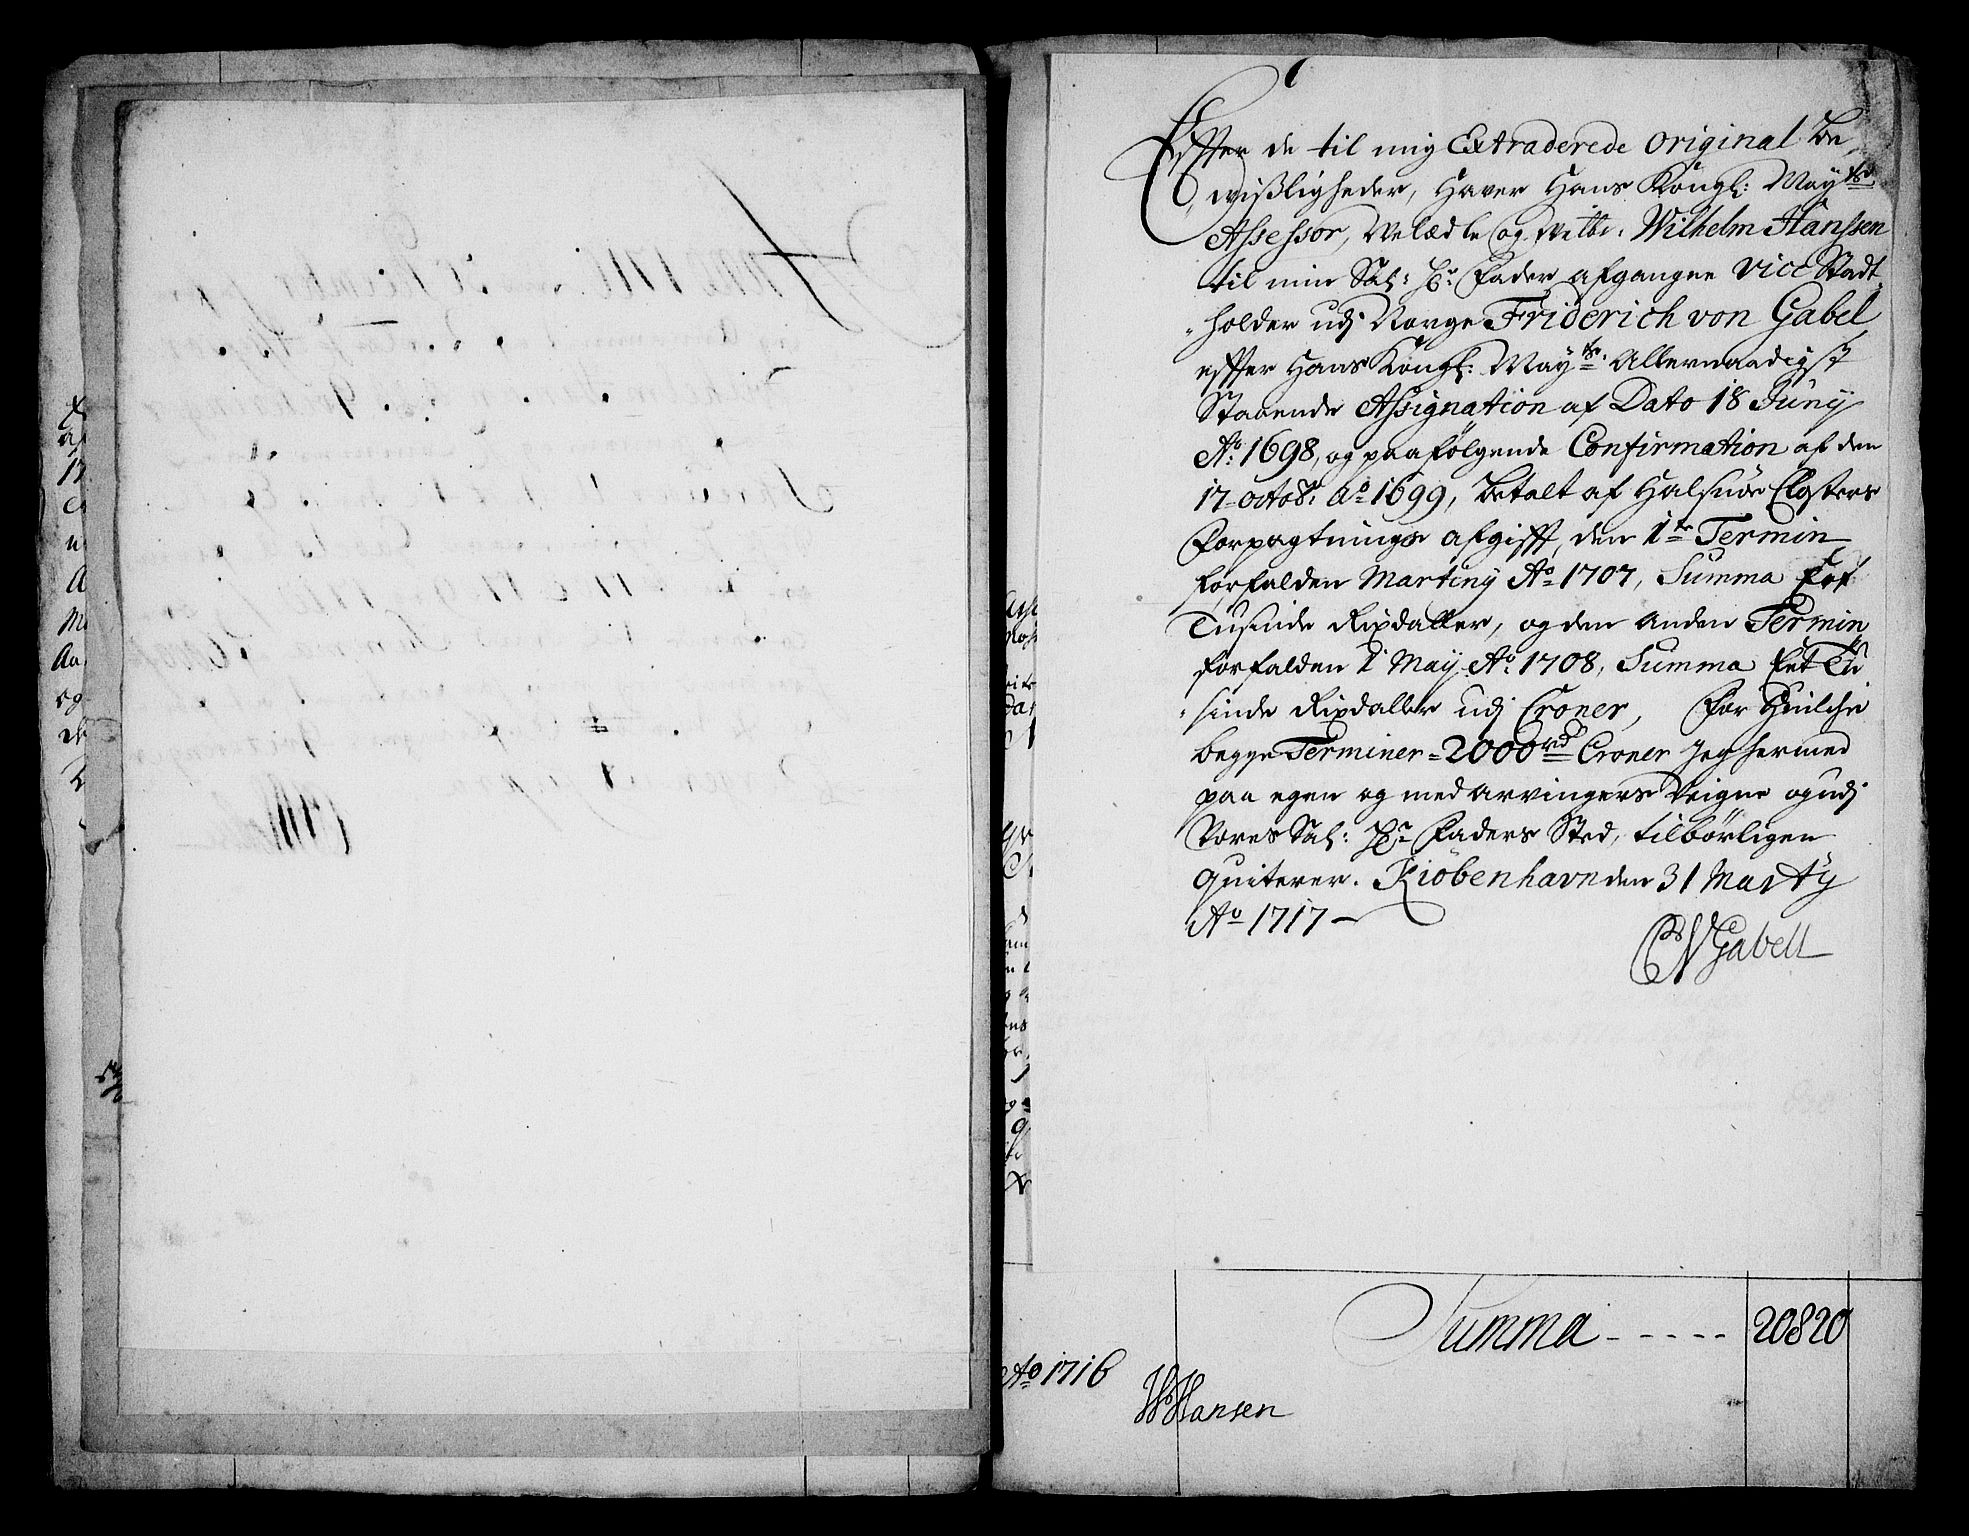 Effter de til mig Extraderede original Be,
wißligheder, Haver Hans Kongl: May:ts
Assessor, Velædle og Wilhelm Hanssen
til min Sal: Hr: Fader afgangne Vice Stadt,
holder udj Norge Friderich von Gabel
effter Hans Kongl: May:ts Allernaadigst
Staaende Assignation af Dato 18 Junij
Ao: 1698, og paafølgende Confirmation af den
17 octobr: Ao 1699, Betalt af Halsnøe Closters
Forpagtnings afgifft, den 1te Termin
forfalden Martiny Ao 1707, Summa Eet
Tusinde Rixdaller, og den anden Termin
forfalden 1 May Ao: 1708, Summa Eet Tu
sinde Rixdaller udj Croner, For Huilche
begge Terminer = 2000 rd Croner Jeg hermed
paa egen og med arvingers Veigne og udj
Vores Sal: Hr Faders Sted, tilbørligen
quiterer. Kiøbenhavn den 31 Marty
Ao 1717
CW Gabell
Summa - - - - - 20820
Ao 1716
WHansen